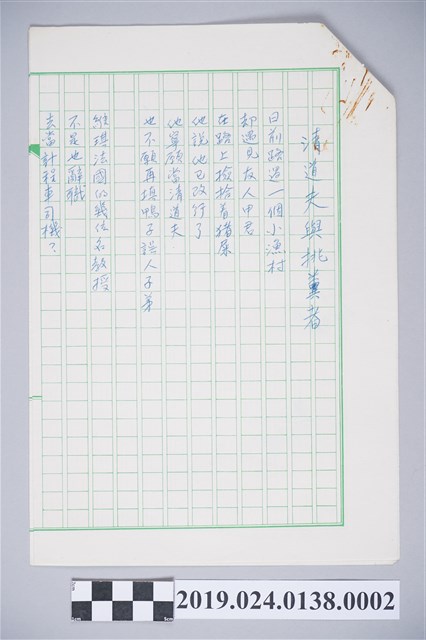 清道夫與挑糞者
日前路過一個小漁村
却遇見友人甲君
在路上撿拾着豬屎
他說他已改行了
他寧願當清道夫
也不願再填鴨子誤人子弟
縱璟法國的幾位名教授
不是也辭職
去當計程車司機？
2019.024.0138.0002